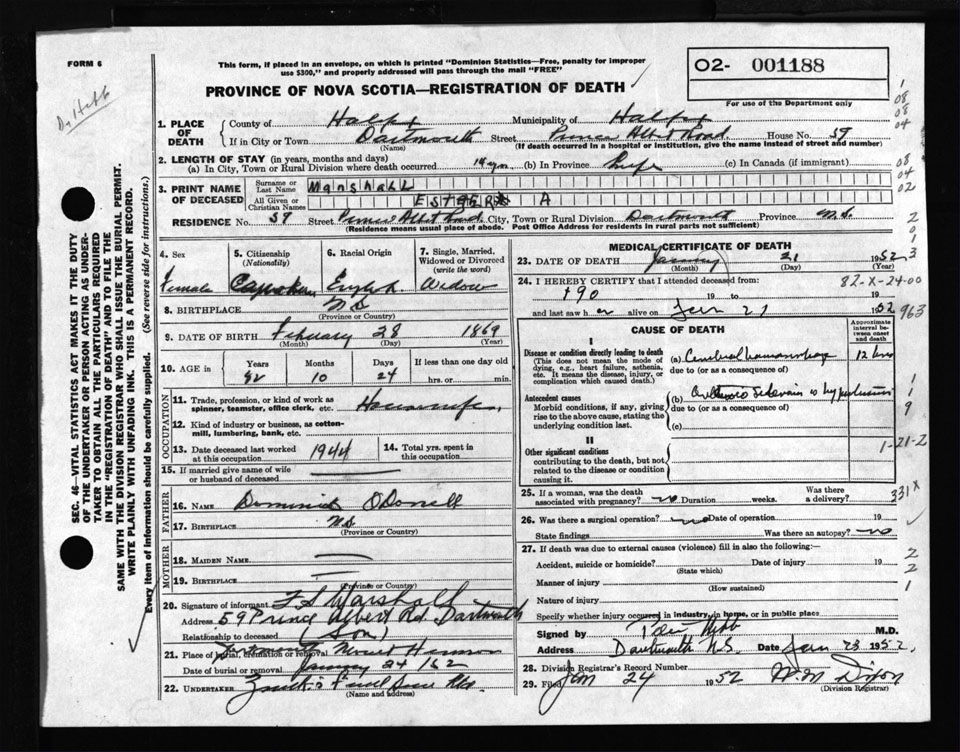 FORM 6
This form, if placed in an envelope, on which is printed "Dominion Statistics—Free, penalty for improper
use $300," and properly addressed will pass through the mail "FREE"
O2- 001188
PROVINCE OF NOVA SCOTIA—REGISTRATION OF DEATH
For use of the Department only
Dr Hebb
1. PLACE OF DEATH
County of Halifax Municipality of Halifax
If in City or Town Dartmouth Street Prince Albert Road House No. 59
(Name) (If death occurred in a hospital or institution, give the name instead of street and number)
2. LENGTH OF STAY (in years, months and days)
(a) In City, Town or Rural Division where death occurred 19 yrs (b) In Province Life (c) In Canada (if immigrant)
3. PRINT NAME OF DECEASED
Surname or Last Name Marshall
All Given or Christian Names ESTHER A
RESIDENCE No. 59 Street Prince Albert Road City, Town or Rural Division Dartmouth Province N.S.
(Residence means usual place of abode. Post Office Address for residents in rural parts not sufficient)
4. Sex Female
5. Citizenship (Nationality) Canadian
6. Racial Origin English
7. Single, Married, Widowed or Divorced (write the word) Widow
8. BIRTHPLACE N S
(Province or Country)
9. DATE OF BIRTH February 28 1869
(Month) (Day) (Year)
10. AGE in Years Months Days If less than one day old
82 10 24 hrs. or min.
OCCUPATION
11. Trade, profession or kind of work as spinner, teamster, office clerk, etc. Housewife
12. Kind of industry or business, as cotton-mill, lumbering, bank, etc.
13. Date deceased last worked at this occupation 1944
14. Total yrs. spent in this occupation
15. If married give name of wife or husband of deceased
FATHER
16. NAME Dominick O'Donell
17. BIRTHPLACE N.S
(Province or Country)
MOTHER
18. MAIDEN NAME
19. BIRTHPLACE
(Province or Country)
20. Signature of informant F S Marshall
Address 59 Prince Albert Rd. Dartmouth
Relationship to deceased (Son)
21. Place of burial, cremation or removal Dartmouth Mount Hermon
Date of burial or removal January 24/52
22. UNDERTAKER
(Name and address)
MEDICAL CERTIFICATE OF DEATH
23. DATE OF DEATH January 21 1952
(Month) (Day) (Year)
24. I HEREBY CERTIFY that I attended deceased from:
82-X-24-00
19 to 19
and last saw her alive on Jan 21 1952
963
CAUSE OF DEATH
Approximate interval between onset and death
I
Disease or condition directly leading to death
(This does not mean the mode of dying, e.g., heart failure, asthenia, etc. It means the disease, injury, or complication which caused death.)
(a) Cerebral haemorrhage 12 hrs
due to (or as a consequence of)
Antecedent causes
Morbid conditions, if any, giving rise to the above cause, stating the underlying condition last.
(b) Arterio Sclerosis & hypertension
due to (or as a consequence of)
(c)
II
Other significant conditions
contributing to the death, but not related to the disease or condition causing it.
1-21-2
25. If a woman, was the death associated with pregnancy? no Duration weeks. Was there a delivery?
331X
26. Was there a surgical operation? no Date of operation 19
State findings Was there an autopsy? no
27. If death was due to external causes (violence) fill in also the following:—
Accident, suicide or homicide? Date of injury 19
(State which)
Manner of injury
(How sustained)
Nature of injury
Specify whether injury occurred in industry, in home, or in public place
Signed by Hebb M.D.
Address Dartmouth N.S. Date Jan 23 1952.
28. Division Registrar's Record Number
29. Filed Jan 24 1952 Dixon
(Division Registrar)
SEC. 46—VITAL STATISTICS ACT MAKES IT THE DUTY
OF THE UNDERTAKER OR PERSON ACTING AS UNDER-
TAKER TO OBTAIN ALL THE PARTICULARS REQUIRED
IN THE "REGISTRATION OF DEATH" AND TO FILE THE
SAME WITH THE DIVISION REGISTRAR WHO SHALL ISSUE THE BURIAL PERMIT.
WRITE PLAINLY WITH UNFADING INK. THIS IS A PERMANENT RECORD.
Every item of information should be carefully supplied. (See reverse side for instructions.)